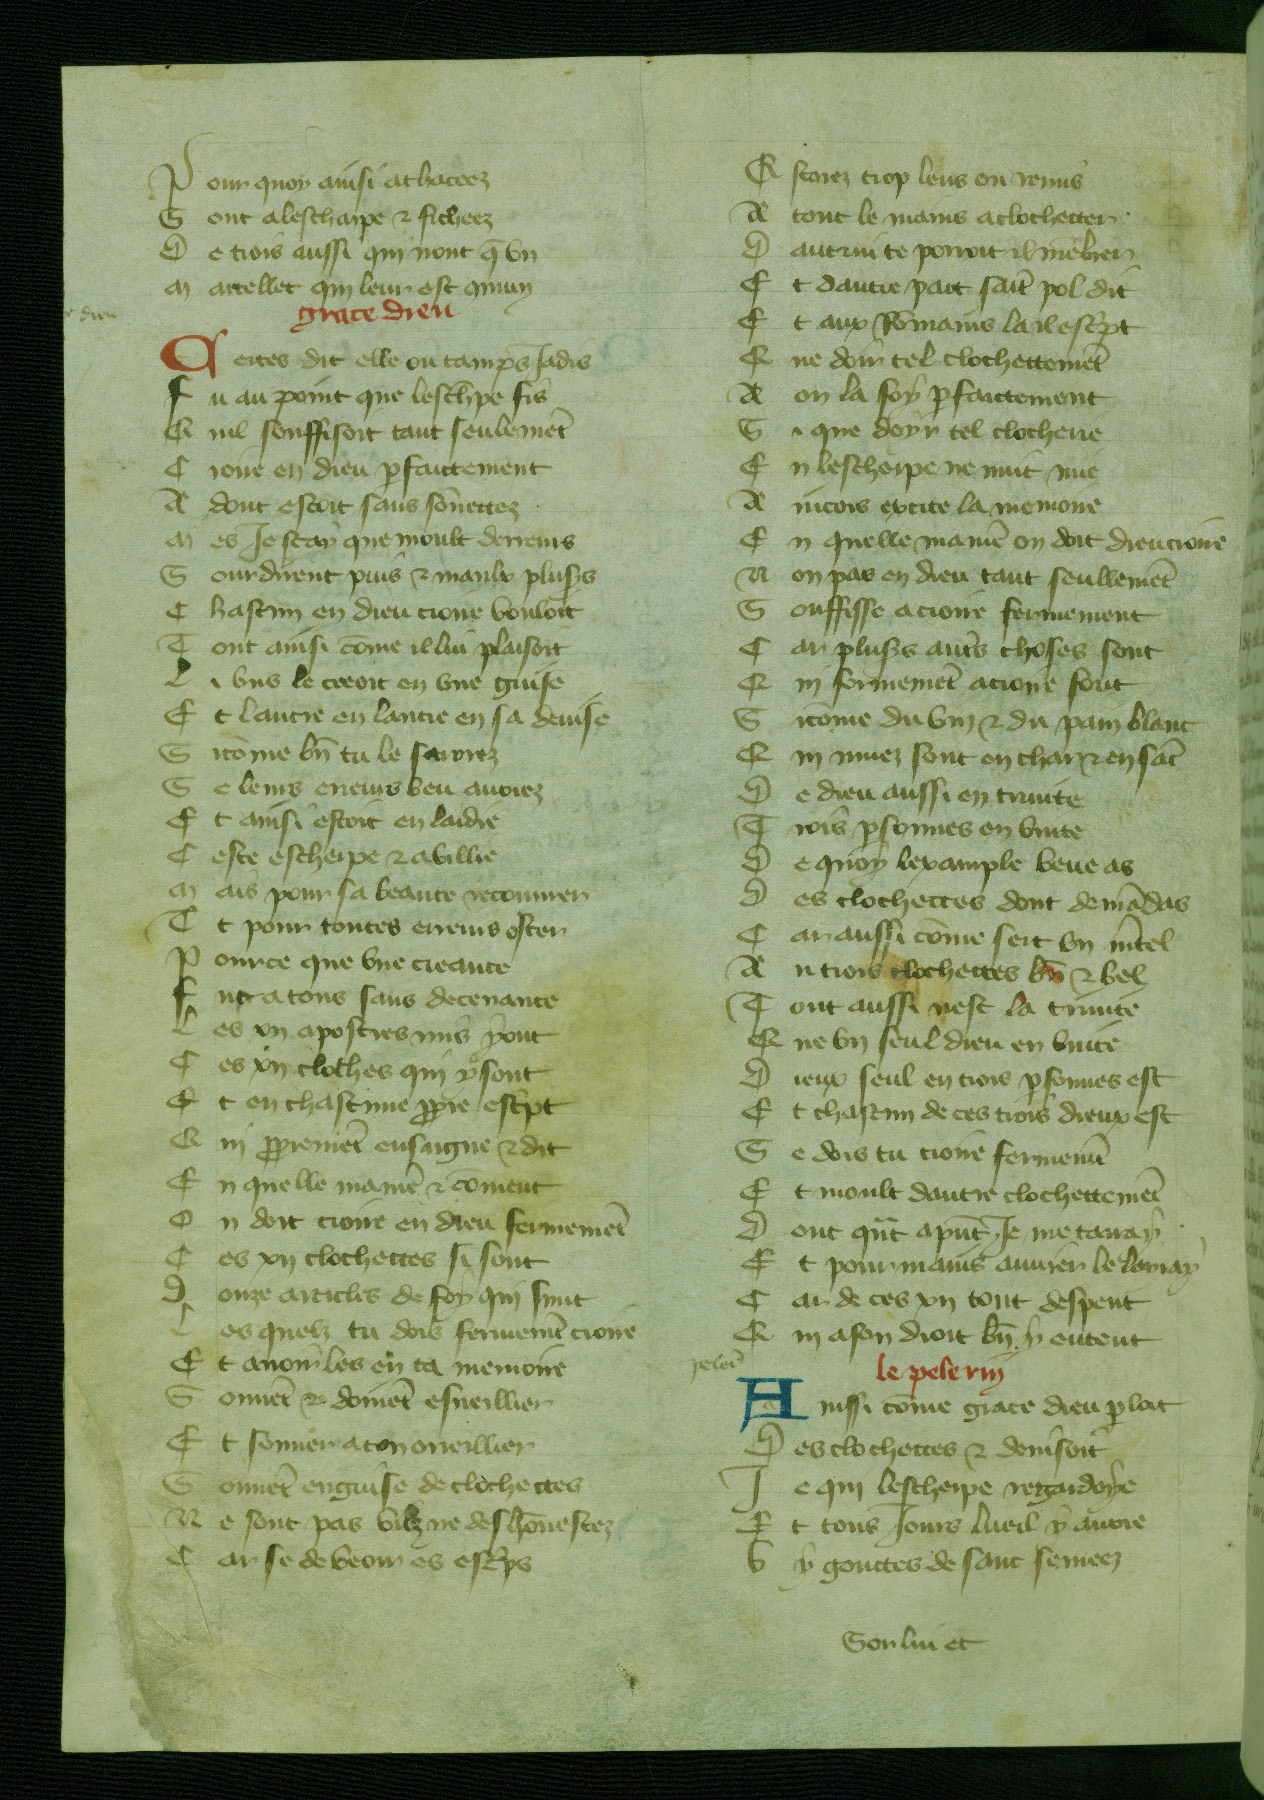 Pour quoy ainsi athaceez
Sont a lescharpe ⁊ ficheez
De trois aussi qui nont q̄ vn
Martellet qui leur est qmun
grace dieu
Certes dit elle ou tamps Jadis
Fu au point que leschr̄pe fis
Qnil souffisoit tant seulemēt
Croire en dieu ꝑfaictement
Adont estoit sans sōnettez
Mes Je scay que moult derreurs
Sourdirent puis ⁊ maulx plus̉s
Chascun en dieu croire vouloit
Tout ainsi cōme il lui plaisoit
Li vns le creoit en vne guise
Et lautre en lautre en sa deuise
Sicōme bn̄ tu le sauroiez
Se leurs erreurs veu auoiez
Et ainsi estoit enlaidie
Ceste escherpe ⁊ avillie
Mais pour sa beaute recouurer
Et pour toutes erreurs oster
Pource que vne creance
Fut a tous sans deceuance
Les xii apostres mis y ont
Ces xii cloches qui y sont
Et en chascune ꝓpre esc̉pt
Qui ꝓpremēt ensaigne ⁊ dit
En quelle manie᷑ ⁊ cōment
On doit croire en dieu fermemēt
Ces xii clochettes si sont
Douze articles de foy qui sunt
Les quelz tu dois fermemēt croire
Et auoir les en ta memoire
Souuēt ⁊ doiuēt esueillier
Et sonner a ton oreillier
Souuēt en guise de clochettes
Ne sont pas vilz ne deshōnestez
Car se de veoir es esc̉ps
Estoiez trop lens ou remis
A tout le mains a clochetter
Dautrui te porroit il mēbrer
Et dautre part sāit pol dit
Et aux Rōmains la il esc̉pt
Que doir tel clochettemēt
A on la foy ꝑfaictement
Si que doyr tel clocherie
En lescherpe ne nuit mie
Aincois excite la memoire
En quelle manie᷑ on doit dieu croire
Non pas en dieu tant seullemēt
Souffisse a croire fermement
Car plus̉s aut̉s choses sont
Qui fermemēt a croire font
Sicōme du vin ⁊ du pain blanc
Qui muez sont en char ⁊ en sāc
De dieu aussi en trinite
Trois ꝑsonnes en vnite
De quoy lexample veue as
Des clochettes dont demādas
Car aussi cōme sert vn m̄tel
A trois clochettes bn̄ ⁊ bel
Tout aussi nest la trinite
Que vn seul dieu en vnite
Dieux seul en trois ꝑsonnes est
Et chascun de ces trois dieux est
Se dois tu croire fermemēt
Et moult dautre clochettemēt
Dont qu̅t a p̄nt Je me tairay
Et pour mains anuier le lairay
Car de ces xii tout despent
Qui a son droit bn̄ y entent
le pelerin
Aiussi cōme grace dieu ꝑloit
Des clochettes ⁊ deuisoit
Je qui lescherpe regardoye
Et tous Jours lueil y auoie
Vy gouttes de sanc semeez
Sour lui et